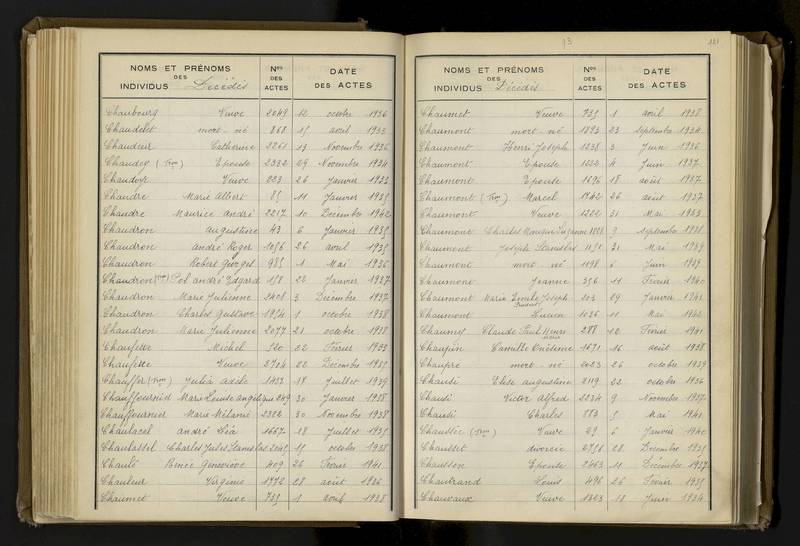 NOMS ET PRÉNOMS
DES
INDIVIDUS Décédés
Nos
DES
ACTES
DATE
DES ACTES
Chaubourg Veuve 2049 12 octobre 1936
Chaudelet mort-né 868 15 avril 1933
Chaudeur Catherine 2261 13 Novembre 1936
Chaudey Epouse 2322 29 Novembre 1934
Veuve 223 26 Janvier 1933
Chaudre Marie Albert 85 11 Janvier 1935
Chaudre Maurice André 2217 10 Décembre 1942
Chaudron Augustine 43 6 Janvier 1935
Chaudron André Roger 1056 26 avril 1935
Chaudron Robert Georges 985 1 Mai 1936
Chaudron Pol André Edgard 158 22 Janvier 1937
Chaudron Marie Julienne 2408 3 Décembre 1937
Chaudron Charles Gustave 1954 1 octobre 1938
Chaudron Marie Julienne 2077 21 octobre 1938
Chaufette Michel 520 22 Février 1933
Chaufette Veuve 2704 22 Décembre 1935
Chauffer Julia 1433 18 Juillet 1939
Marie Louise 249 30 Janvier 1938
Chauffournier Marie Mélanie 2322 30 Novembre 1938
Chaulacel André Léa 1667 18 Juillet 1935
Charles Jules Stanislas 2045 15 octobre 1938
Chaulé Renée Geneviève 409 26 Février 1941
Chauleur Virginie 1772 28 août 1936
Chaumet Veuve 735 1 avril 1938
93
121
NOMS ET PRÉNOMS
DES
INDIVIDUS Décédés
Nos
DES
ACTES
DATE
DES ACTES
Chaumet Veuve 735 1 avril 1938
Chaumont mort-né 1893 23 Septembre 1934
Chaumont Henri Joseph 1238 3 Juin 1936
Chaumont Epouse 1224 4 Juin 1937
Chaumont Epouse 1696 18 août 1937
Chaumont Marcel 1742 26 août 1937
Chaumont Veuve 1222 31 Mai 1933
Chaumont Charles 1808 9 Septembre 1938
Chaumont Joseph Stanislas 1151 31 Mai 1939
Chaumont mort-né 1198 6 Juin 1939
Chaumont Jeanne 356 11 Février 1940
Chaumont Marie Emile Joseph 203 29 Janvier 1941
Chaumont Lucien 1036 11 Mai 1942
Chaumy Claude Paul Henri 288 12 Février 1941
Chaupin Camille Onésime 1671 16 août 1938
Chaupré mort-né 2023 26 octobre 1939
Chausi Elise Augustine 2119 22 octobre 1936
Chausi Victor Alfred 2234 9 Novembre 1937
Chausi Charles 883 5 Mai 1941
Chaussée Veuve 29 6 Janvier 1940
Chausset divorcée 2756 28 Décembre 1935
Chausson Epouse 2463 11 Décembre 1937
Chautrand Louis 496 26 Février 1935
Chauvaux Veuve 1303 18 Juin 1934